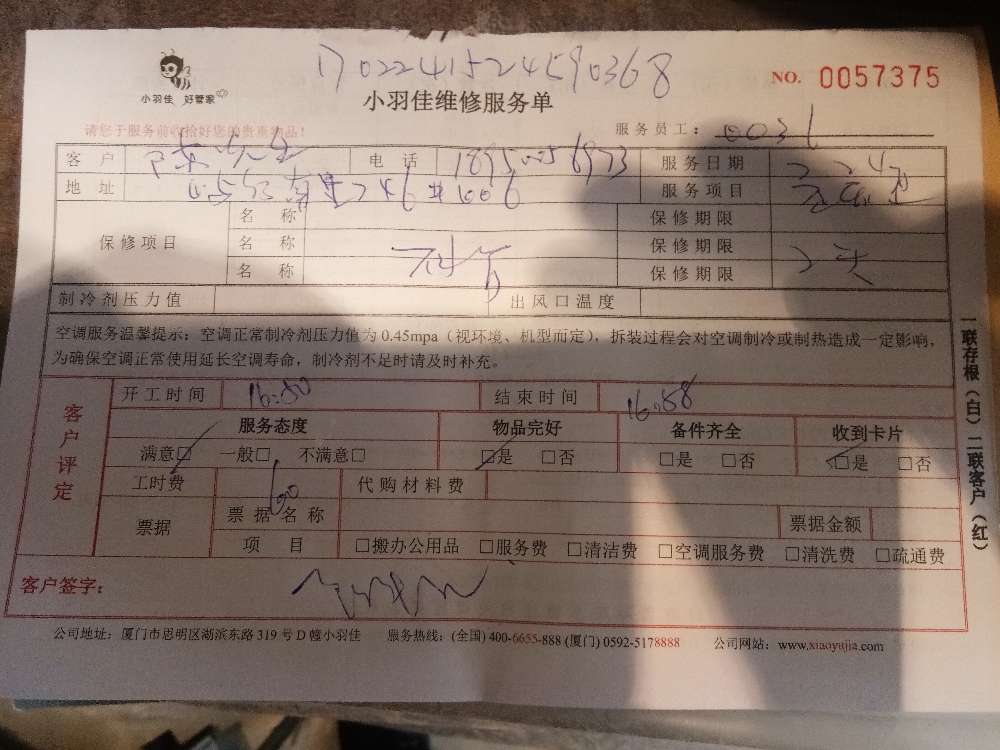 170224152459 0368
NO. 0057375
小羽佳 好管家
小羽佳维修服务单
请您于服务前收拾好您的贵重物品!
服务员工:
客户 电话 服务日期
地址 246 服务项目
保修项目 名称 保修期限
名称 保修期限
名称 保修期限
制冷剂压力值 出风口温度
空调服务温馨提示:空调正常制冷剂压力值为0.45mpa(视环境、机型而定),拆装过程会对空调制冷或制热造成一定影响,
为确保空调正常使用延长空调寿命,制冷剂不足时请及时补充。
客户评定
开工时间 结束时间 16:58
服务态度 物品完好 备件齐全 收到卡片
满意□ 一般□ 不满意□ □是 □否 □是 □否 □是 □否
工时费 代购材料费
票据 票据名称 票据金额
项目 □搬办公用品 □服务费 □清洁费 □空调服务费 □清洗费 □疏通费
客户签字:
一联存根(白)二联客户(红)
公司地址:厦门市思明区湖滨东路319号D幢小羽佳 服务热线:(全国)400-6655-888 (厦门)0592-5178888 公司网站:www.xiaoyujia.com